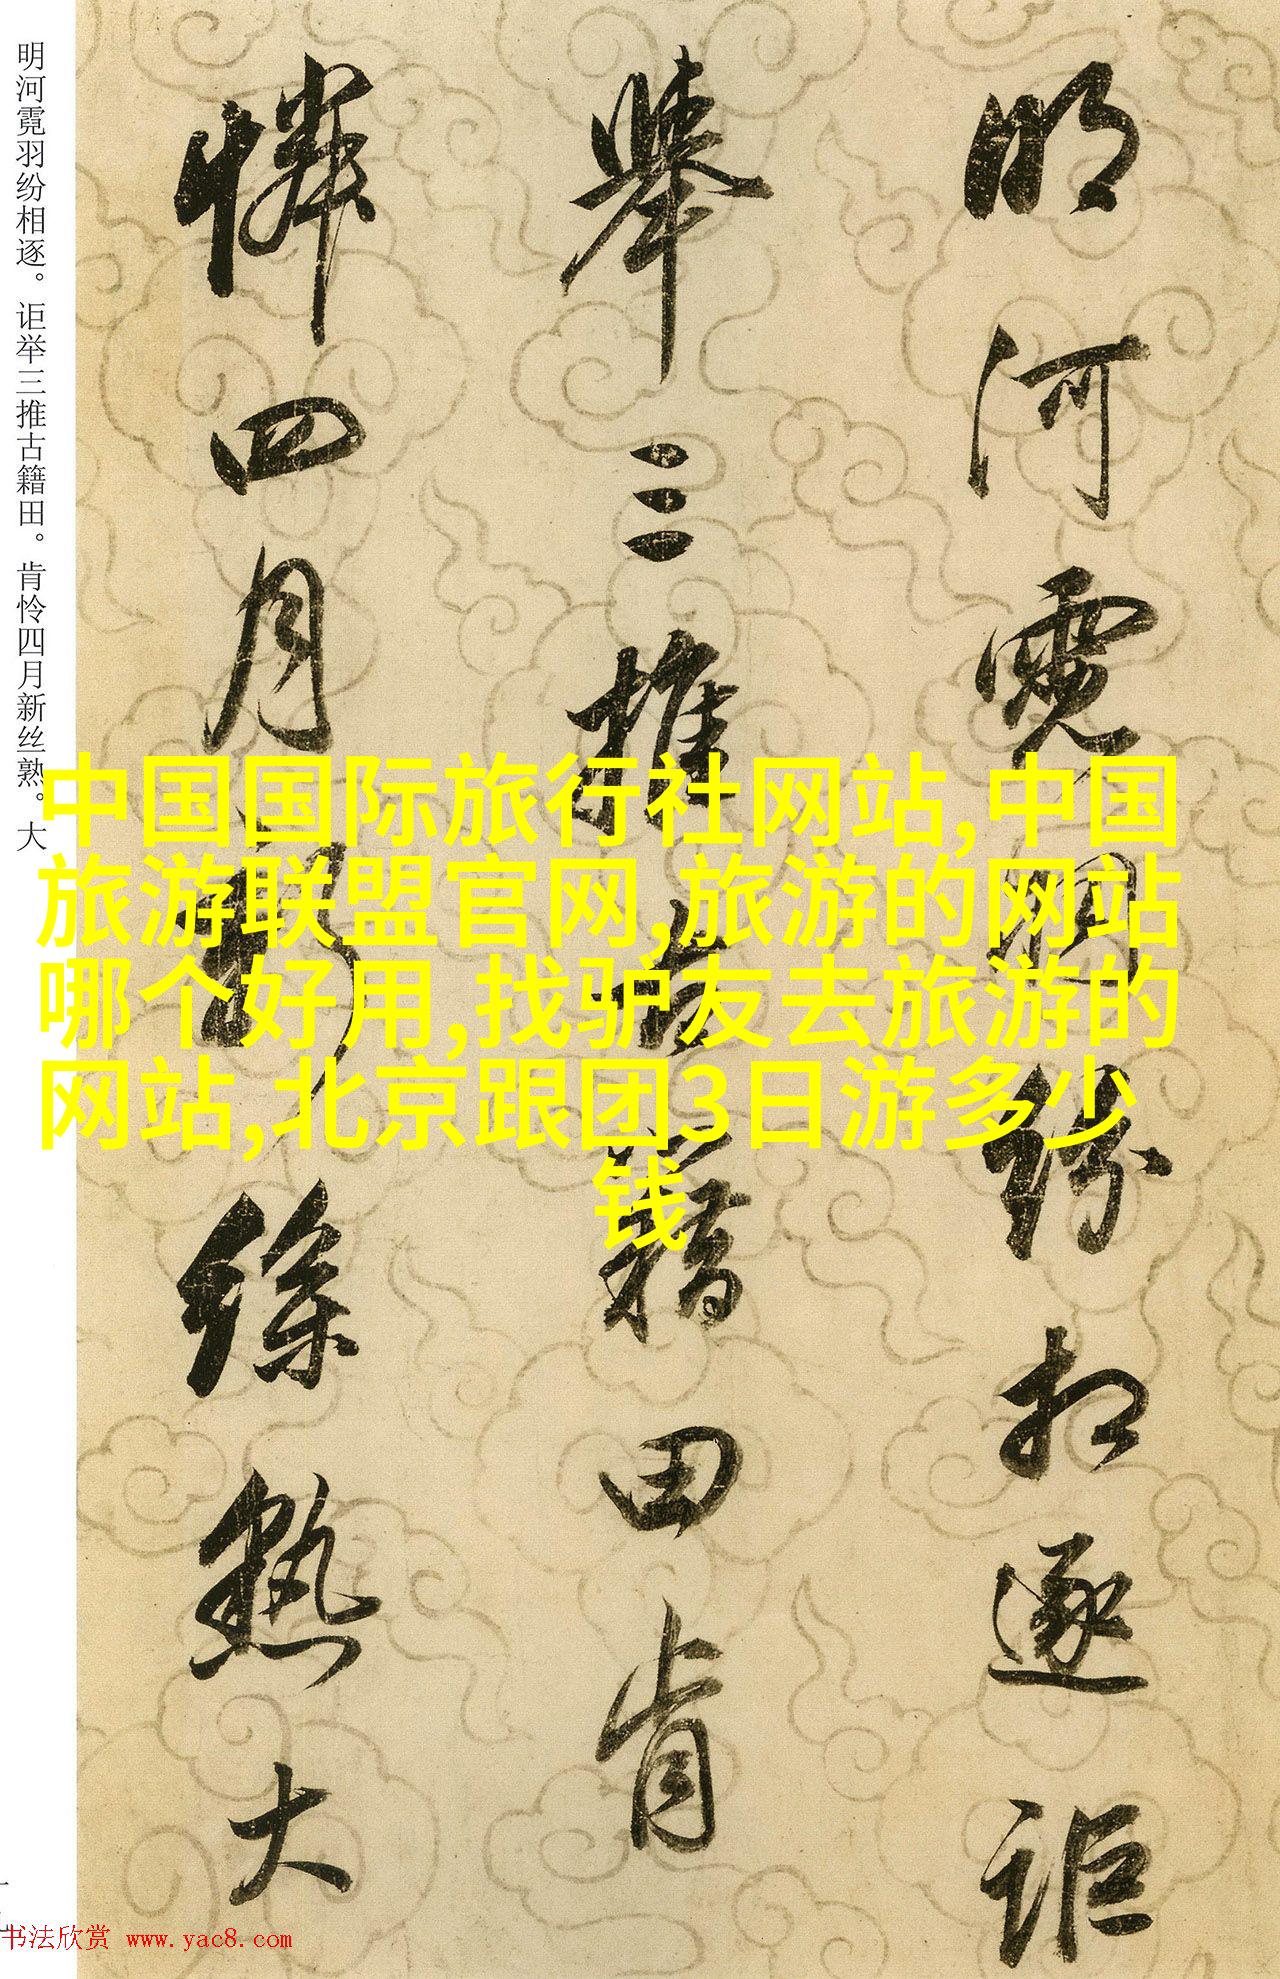 明河霓羽纷相逐。讵举三推古籍田。肯怜四月新丝熟。大
明河霓羽紛相逐詎
舉三推古籍田肯
憐四月新絲熟大
中国国际旅行社网站,中国
旅游联盟官网,旅游的网站
哪个好用,找驴友去旅游的
网站,北京跟团3日游多少
钱
书法欣赏 www.yac8.com